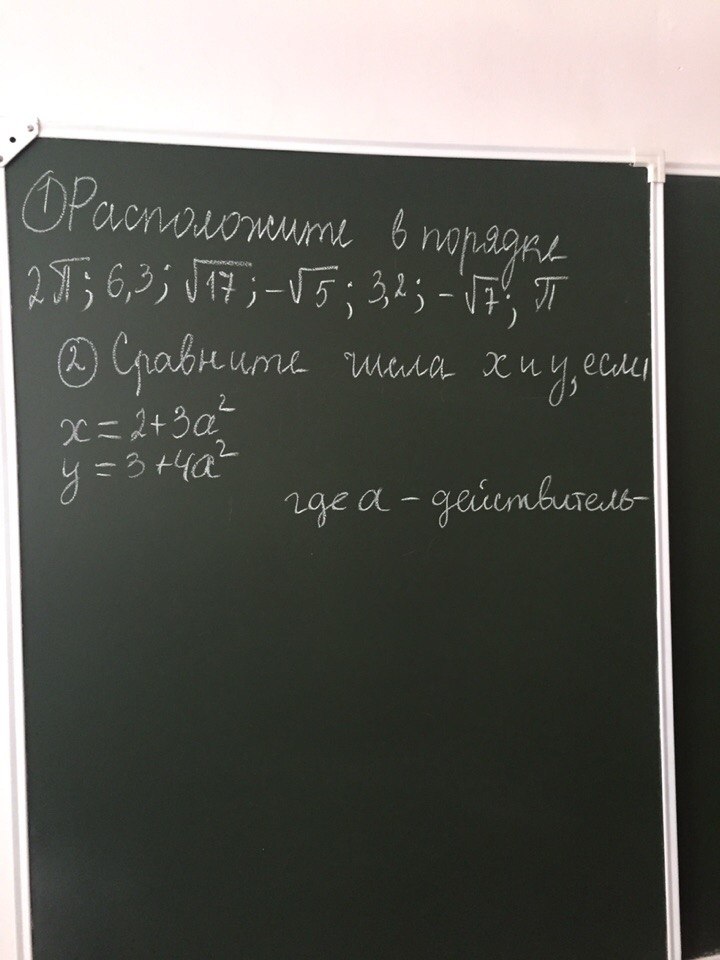 ① Расположите в порядке
2π; 6,3; √17; -√5; 3,2; -√7; π
② Сравните числа х и у, если
x = 2 + 3a²
y = 3 + 4a²
где a - действитель-